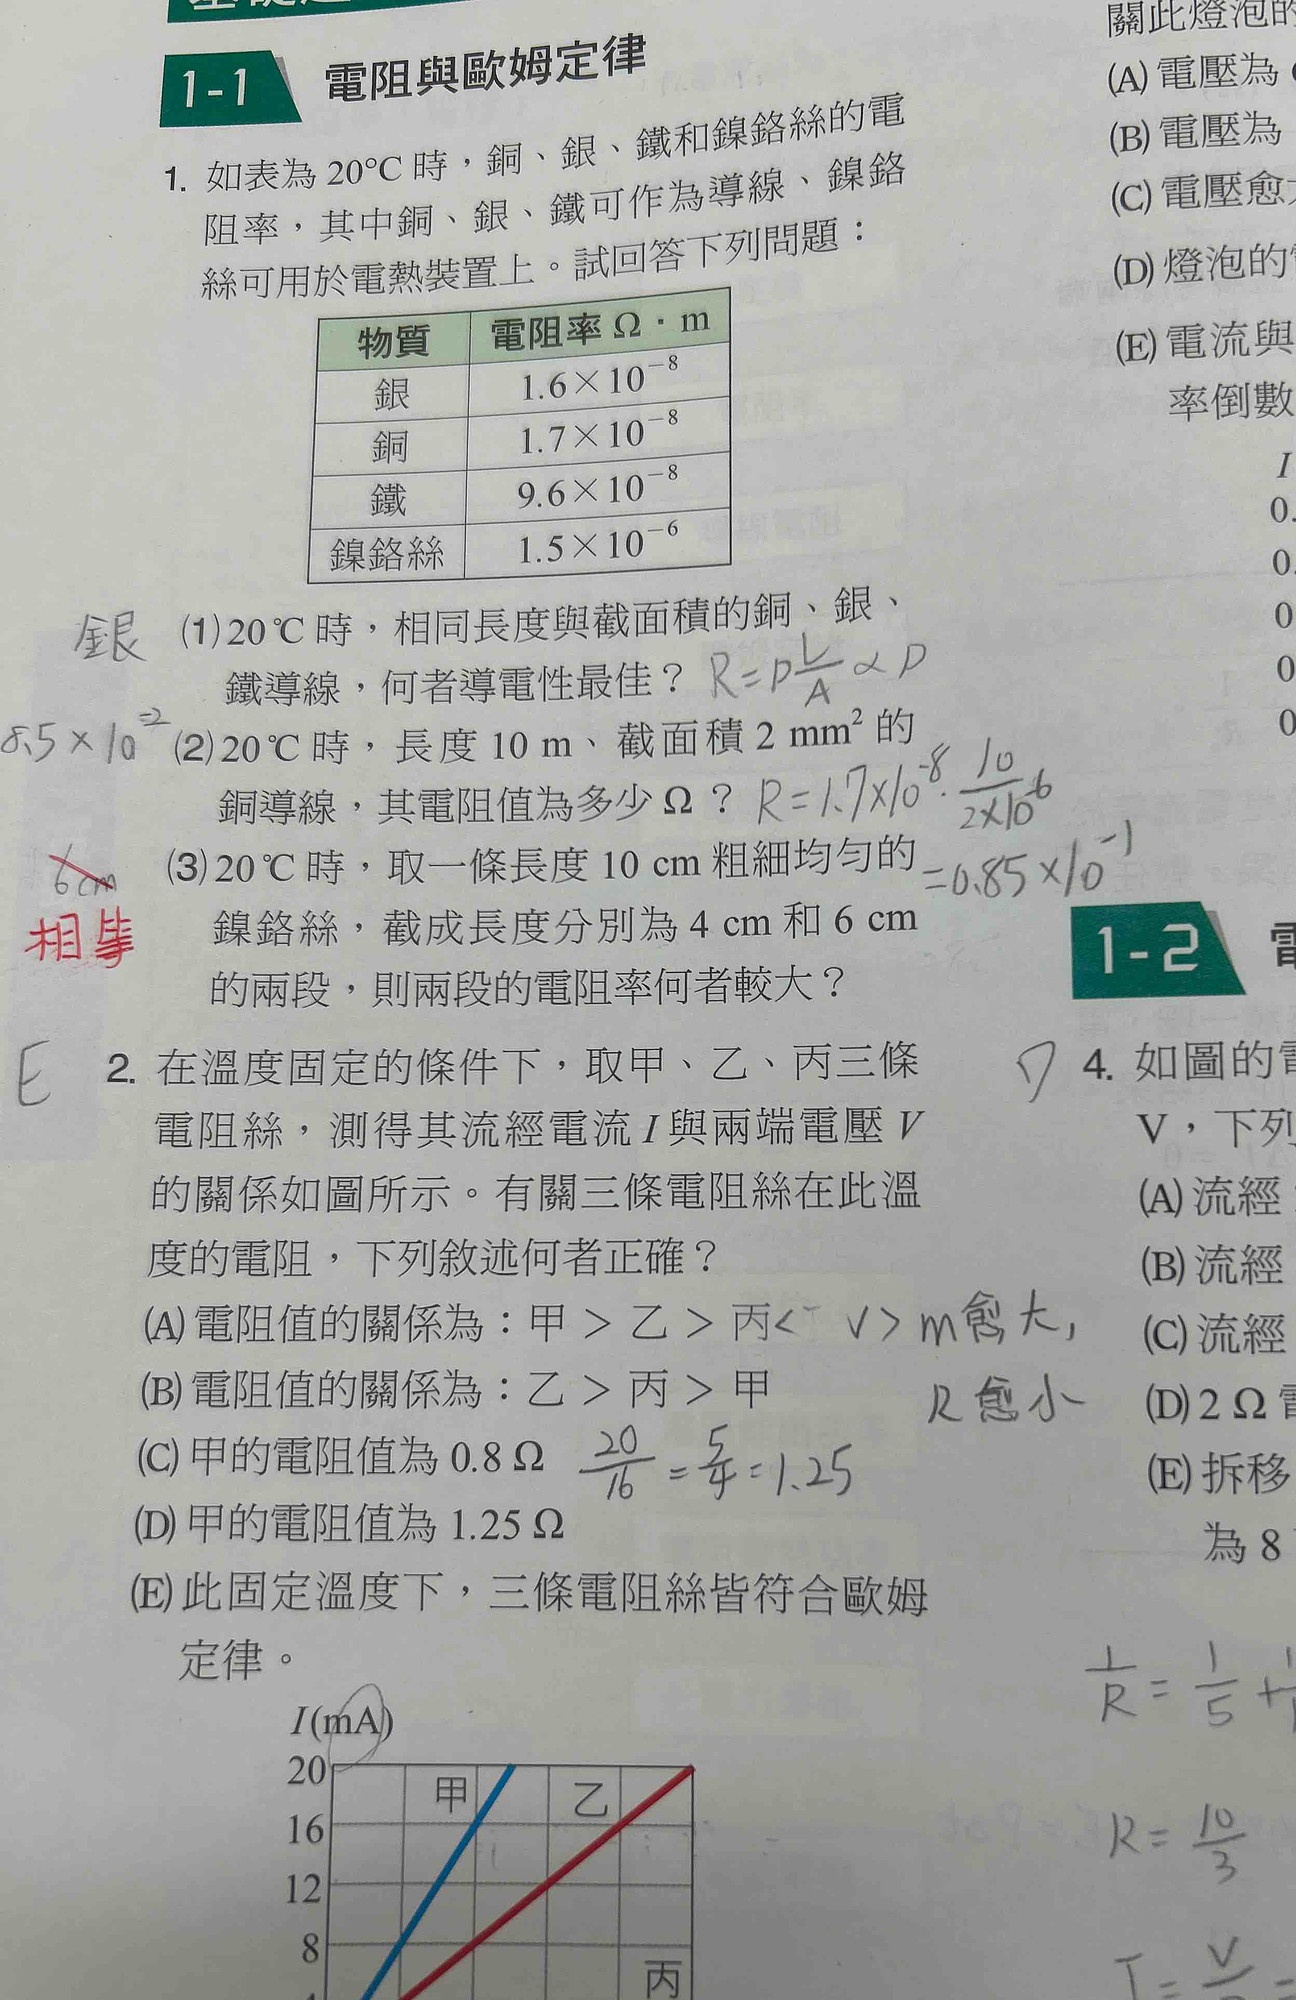 1-1 電阻與歐姆定律
1. 如表為 20°C 時，銅、銀、鐵和鎳鉻絲的電
阻率，其中銅、銀、鐵可作為導線、鎳鉻
絲可用於電熱裝置上。試回答下列問題：
物質 電阻率 Ω·m
銀 1.6×10⁻⁸
銅 1.7×10⁻⁸
鐵 9.6×10⁻⁸
鎳鉻絲 1.5×10⁻⁶
銀 (1) 20℃ 時，相同長度與截面積的銅、銀、
鐵導線，何者導電性最佳？ R=ρL/A ∝ ρ
8.5×10⁻² (2) 20℃ 時，長度 10 m、截面積 2 mm² 的
銅導線，其電阻值為多少 Ω？ R=1.7×10⁻⁸·10/2×10⁻⁶
=0.85×10⁻¹
6cm (3) 20℃ 時，取一條長度 10 cm 粗細均勻的
相等 鎳鉻絲，截成長度分別為 4 cm 和 6 cm
的兩段，則兩段的電阻率何者較大？
E 2. 在溫度固定的條件下，取甲、乙、丙三條
電阻絲，測得其流經電流 I 與兩端電壓 V
的關係如圖所示。有關三條電阻絲在此溫
度的電阻，下列敘述何者正確？
(A) 電阻值的關係為：甲 > 乙 > 丙
m愈大，
(B) 電阻值的關係為：乙 > 丙 > 甲
R愈小
(C) 甲的電阻值為 0.8 Ω 20/16=5/4=1.25
(D) 甲的電阻值為 1.25 Ω
(E) 此固定溫度下，三條電阻絲皆符合歐姆
定律。
I(mA)
20
甲 乙
16
12
8
丙
關此燈泡的
(A) 電壓為
(B) 電壓為
(C) 電壓愈
(D) 燈泡的
(E) 電流與
率倒數
I
0.
0.
0
0
0
1-2
4. 如圖的
V，下列
(A) 流經
(B) 流經
(C) 流經
(D) 2 Ω
(E) 拆移
為 8
1/R=1/5+
R=10/3